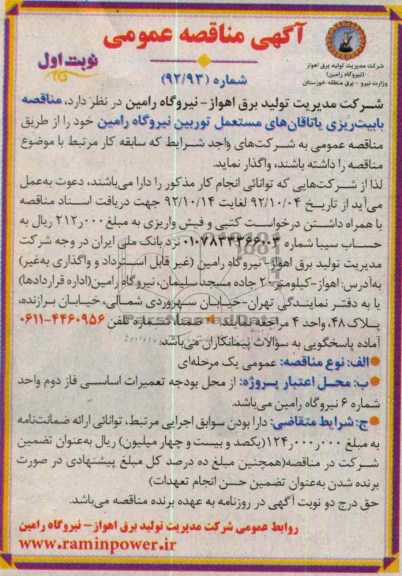 آگهی مناقصه عمومی
نوبت اول
شماره (۹۲/۹۳)
شرکت مدیریت تولید برق اهواز
(نیروگاه رامین)
وزارت نیرو - برق منطقه خوزستان
شرکت مدیریت تولید برق اهواز - نیروگاه رامین در نظر دارد، مناقصه
بابیت‌ریزی یاتاقان‌های مستعمل توربین نیروگاه رامین خود را از طریق
مناقصه عمومی به شرکت‌های واجد شرایط که سابقه کار مرتبط با موضوع
مناقصه را داشته باشند، واگذار نماید.
لذا از شرکت‌هایی که توانائی انجام کار مذکور را دارا می‌باشند، دعوت به‌عمل
می‌آید از تاریخ ۹۲/۱۰/۰۴ لغایت ۹۲/۱۰/۱۴ جهت دریافت اسناد مناقصه
با همراه داشتن درخواست کتبی و فیش واریزی به مبلغ ۲۱۲٫۰۰۰ ریال به
حساب سیبا شماره ۰۱۰۷۸۳۳۳۶۶۰۰۳ نزد بانک ملی ایران در وجه شرکت
مدیریت تولید برق اهواز - نیروگاه رامین (غیر قابل استرداد و واگذاری به‌غیر)
به‌آدرس: اهواز-کیلومتر ۲۰ جاده مسجد سلیمان، نیروگاه رامین (اداره قراردادها)
یا به دفتر نمایندگی تهران-خیابان سهروردی شمالی، خیابان برازنده،
پلاک ۴۸، واحد ۴ مراجعه نمایند. ضمنا، شماره تلفن ۴۴۶۰۹۵۶-۰۶۱۱
آماده پاسخگویی به سؤالات پیمانکاران می‌باشد.
الف: نوع مناقصه: عمومی یک مرحله‌ای
ب: محل اعتبار پروژه: از محل بودجه تعمیرات اساسی فاز دوم واحد
شماره ۶ نیروگاه رامین می‌باشد.
ج: شرایط متقاضی: دارا بودن سوابق اجرایی مرتبط، توانائی ارائه ضمانت‌نامه
به مبلغ ۱۲۴٫۰۰۰٫۰۰۰ (یکصد و بیست و چهار میلیون) ریال به‌عنوان تضمین
شرکت در مناقصه (همچنین مبلغ ده درصد کل مبلغ پیشنهادی در صورت
برنده شدن به‌عنوان تضمین حسن انجام تعهدات)
حق درج دو نوبت آگهی در روزنامه به عهده برنده مناقصه می‌باشد.
روابط عمومی شرکت مدیریت تولید برق اهواز - نیروگاه رامین
www.raminpower.ir